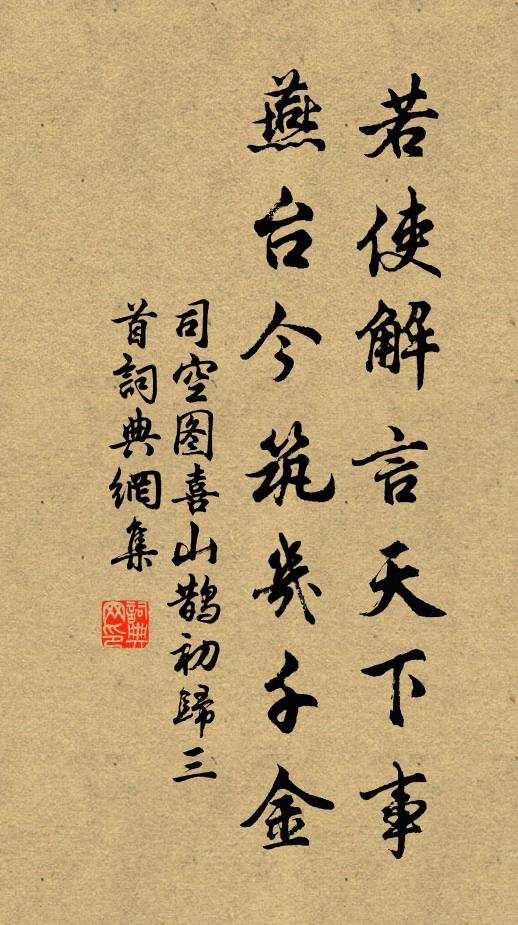 若使解言天下事
燕台今筑幾千金
司空图喜山鵲初歸三
首詞典網集
詞典网印